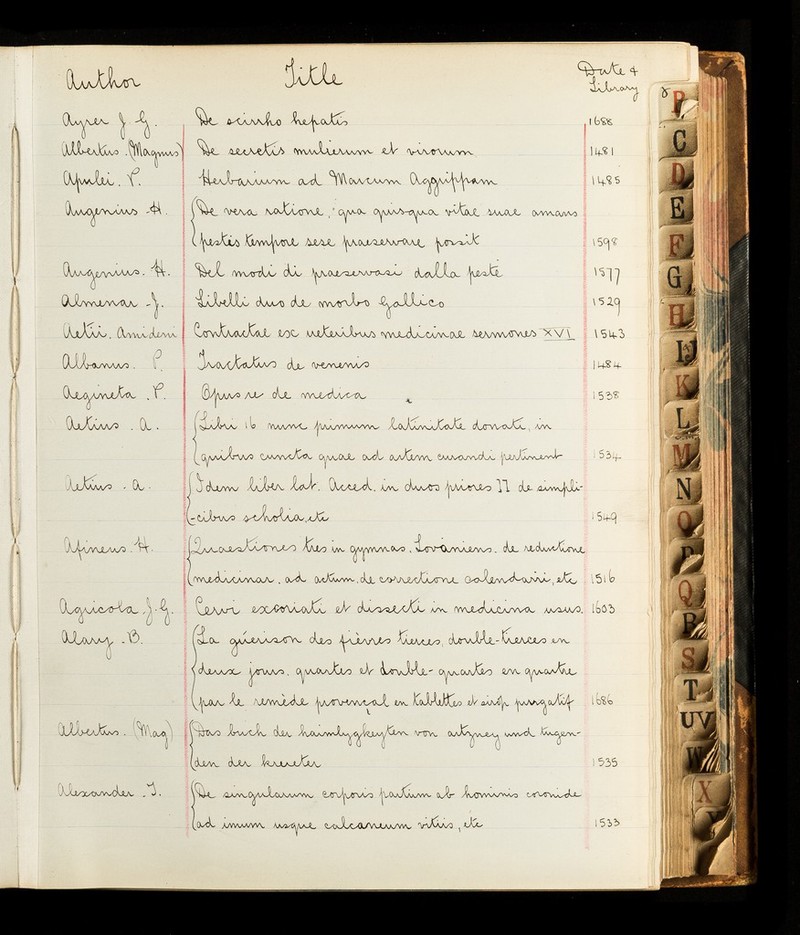 Author Title Date & Library
Ayrer J. G. De scirrho hepatis 1688
Albertus (Magnus) De secretis mulierum et virorum 1481
Apulei. P. Herbarium ad Marcum Aggrippam 1485
Augenius H. De vera ratione, qua quisqua vitae suae amans
pestis tempore sese praeservare possit 1598
Augenius. H. Del modi di praeservasi dalla peste 1577
Almenar J. Libelli duo de morbo Gallico 1529
Aetii. Amideni Contractae ex veteribus medicinae sermones XVI 1543
Albanus. P. Tractatus de venenis 1484
Aegineta. P. Opus re de medica 1538
Aetius. A. Libri 16 nunc primum latinitate donati, in
quibus cuncta quae ad artem curandi pertinent 1534
Aetius. A. Idem liber lat. Acced. in duos priores 11 de simpli-
-cibus scholia, etc 1549
Afineus. H. Quaestiones tres in gymnas. Lovaniens. de reductione
medicinar. ad actum, de correctione calendarii, etc 1516
Agricola. J. G. Cervi excoriati et dissecti in medicina usus. 1603
Alary. B. La guérison des fièvres tierces, double-tierces en
deux jours. quartes et double-quartes en quatre
par le remède provençal en tablettes et sirop purgatif 1686
Albertus. (Mag) Das buch der haimlygkeyten von artzney und tugen-
den der kreuter 1535
Alexander. T. De singularum corporis partium ab hominis coronide
ad imum usque calcaneum vitiis, etc 1533
B
C
D
E
F
G
H
IJ
K
L
M
N
O
P
Q
R
S
T
UV
W
X
Y